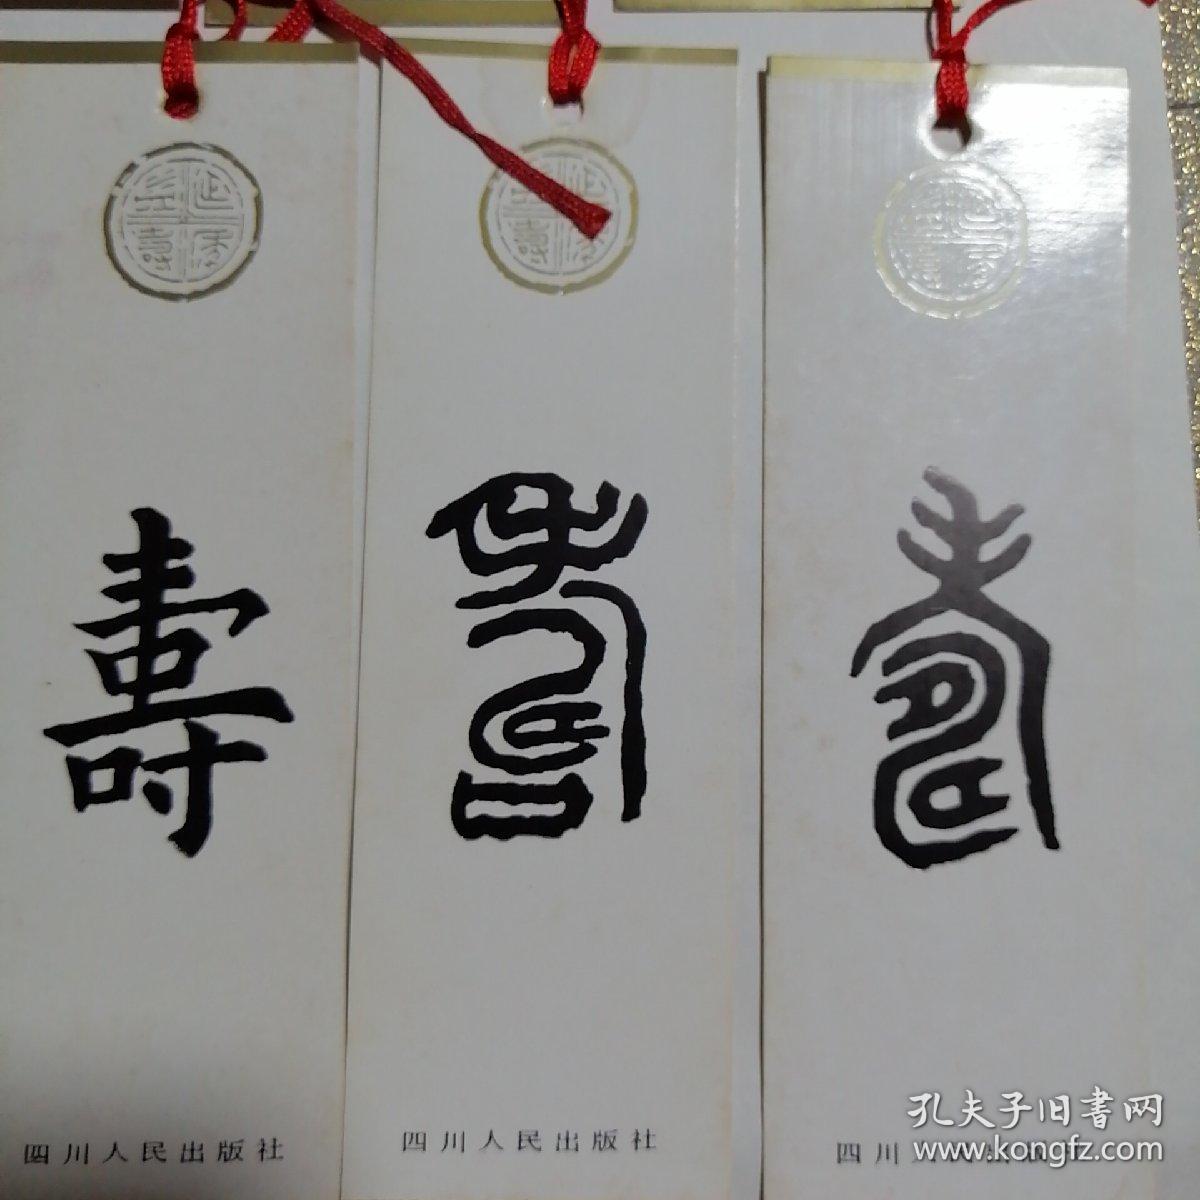 壽
四川人民出版社
壽
四川人民出版社
壽
四川人民出版社
孔夫子旧書网
www.kongfz.com